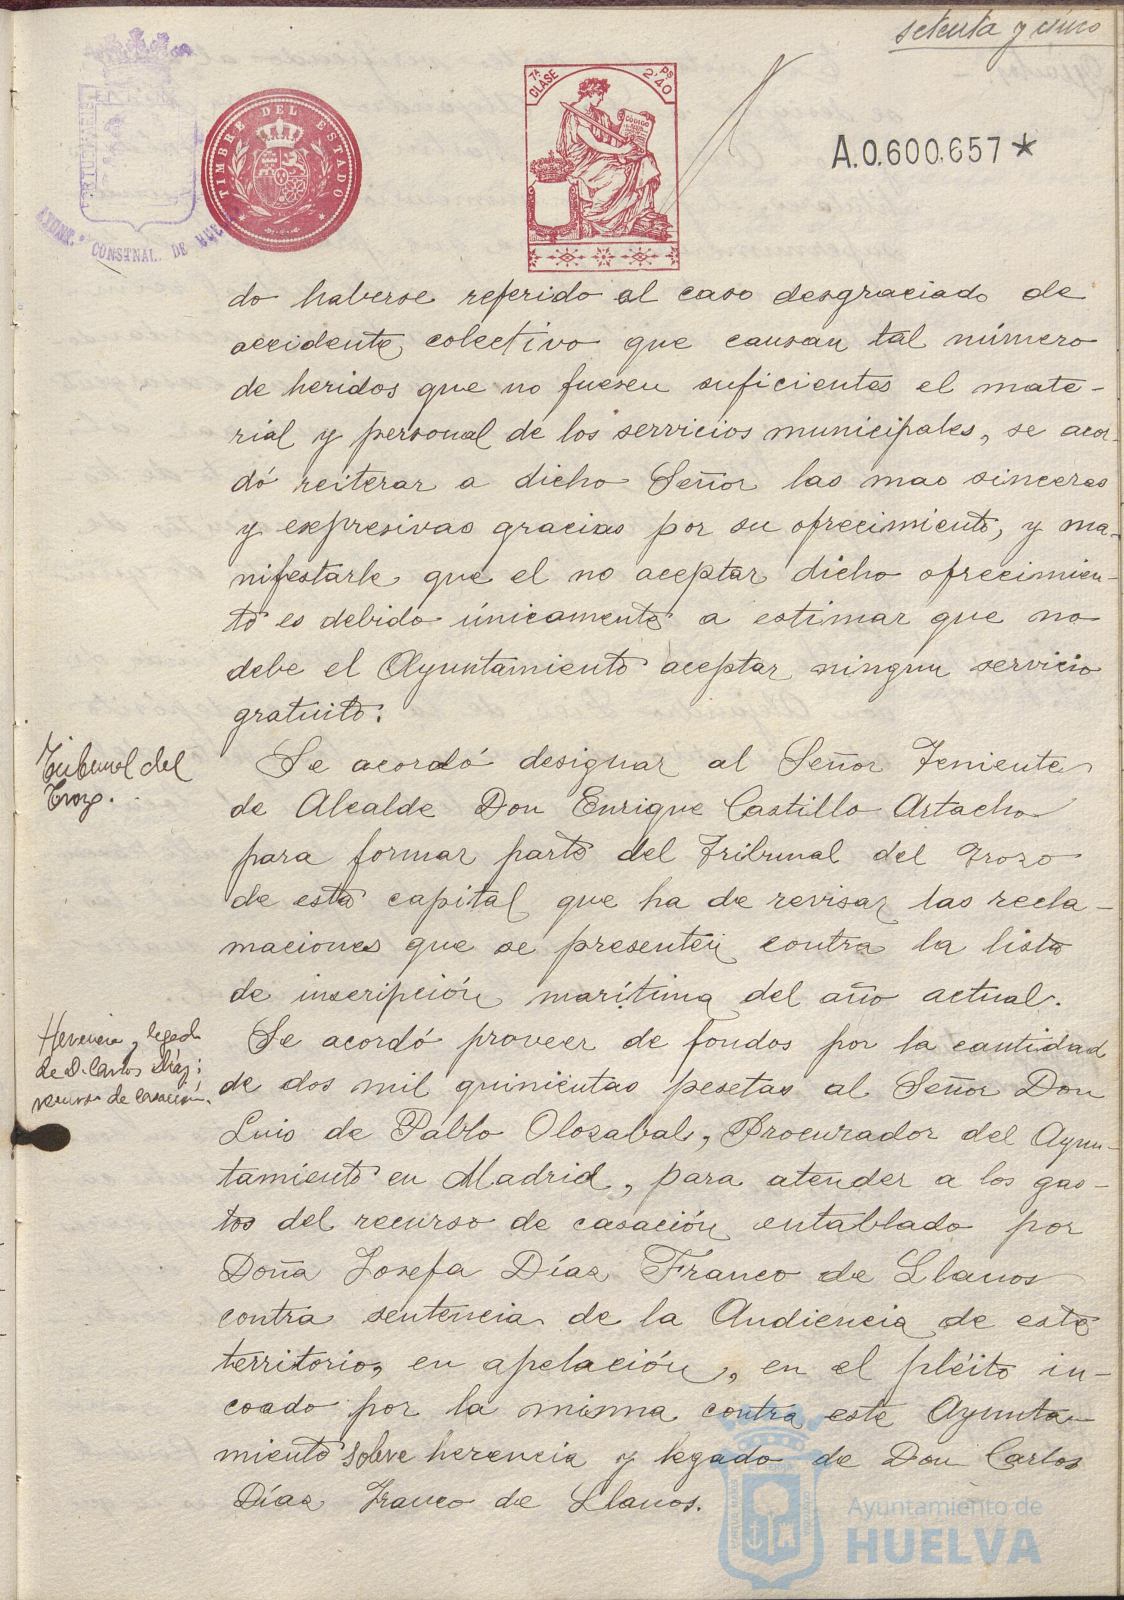 setenta y cinco
TIMBRE DEL ESTADO
7ª CLASE
Ps 2'40
CÓDIGO
A.0.600.657*
CONSTNAL. DE
do haberse referido al caso desgraciado de
accidente colectivo que causan tal número
de heridos que no fuesen suficientes el mate-
rial y personal de los servicios municipales, se acor-
dó reiterar a dicho Señor las mas sinceras
y expresivas gracias por su ofrecimiento, y ma-
nifestarle que el no aceptar dicho ofrecimien-
to es debido únicamente a estimar que no
debe el Ayuntamiento aceptar ningun servicio
gratuito.
Tribunal del
Trozo.
Se acordó designar al Señor Teniente
de Alcalde Don Enrique Castillo Artacho
para formar parte del Tribunal del Trozo
de esta capital que ha de revisar las recla-
maciones que se presenten contra la lista
de inscripción marítima del año actual.
Herencia y legado
de D. Carlos Díaz;
recurso de casación.
Se acordó proveer de fondos por la cantidad
de dos mil quinientas pesetas al Señor Don
Luis de Pablo Olozabal, Procurador del Ayun-
tamiento en Madrid, para atender a los gas-
tos del recurso de casación entablado por
Doña Josefa Díaz Franco de Llanos
contra sentencia de la Audiencia de este
territorio, en apelación, en el pléito in-
coado por la misma contra este Ayunta-
miento sobre herencia y legado de Don Carlos
Díaz Franco de Llanos.
Ayuntamiento de
HUELVA